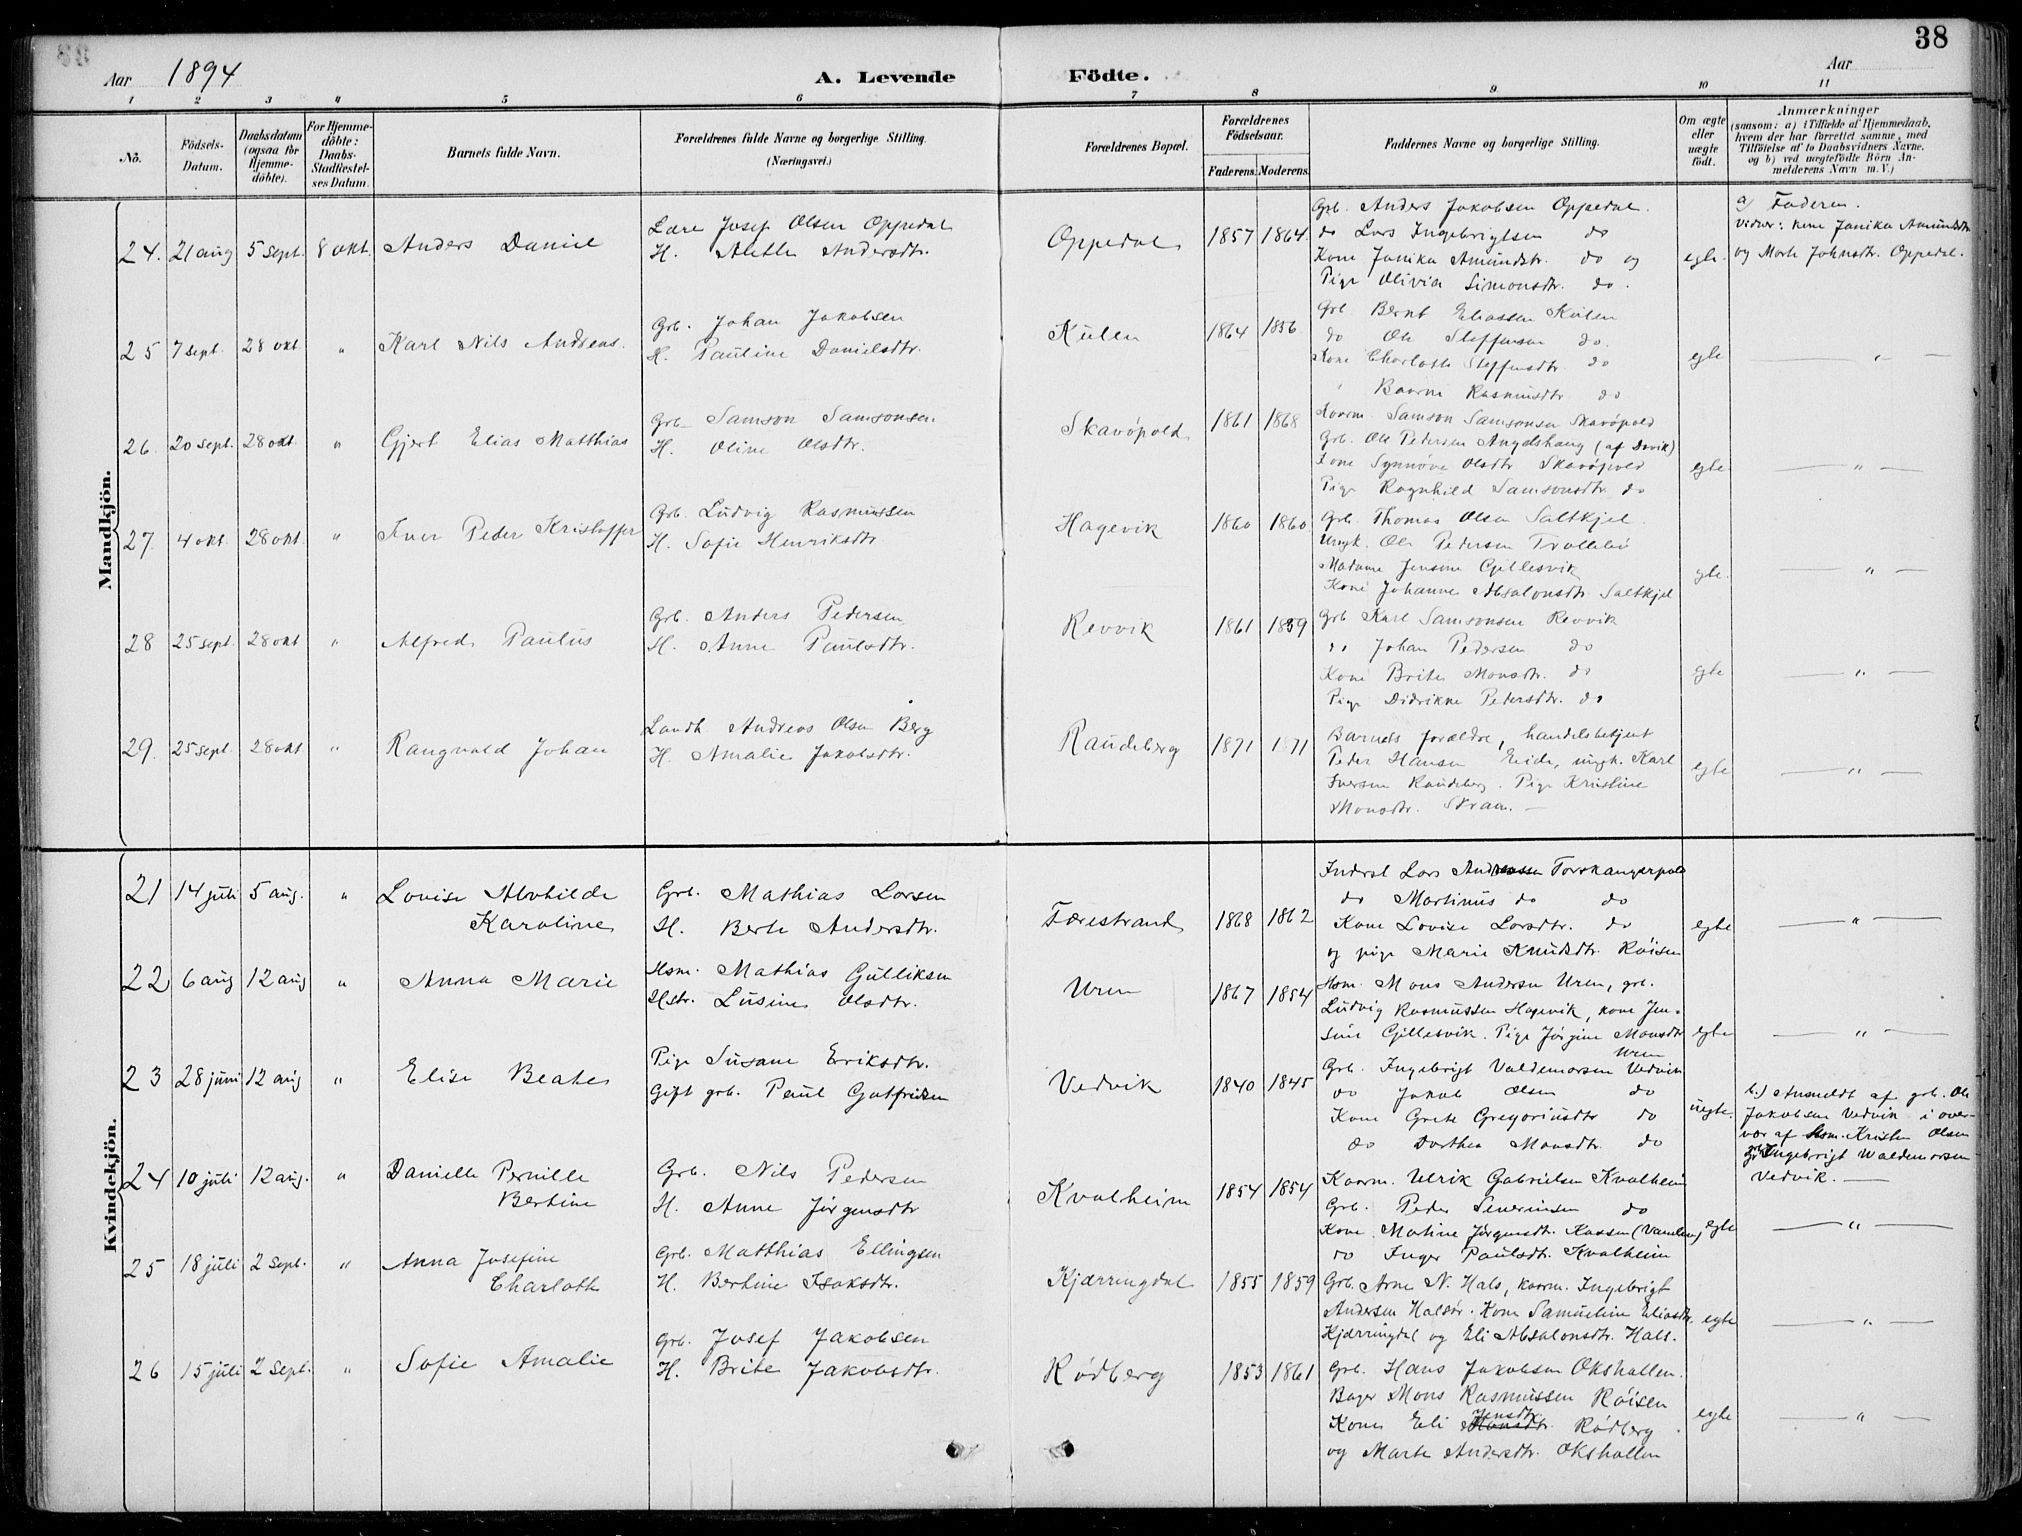 38
Aar 1894
A. Levende Födte.
Aar
1 2 3 4 5 6 7 8 9 10 11
No.
Födsels-Datum.
Daabsdatum (ogsaa for Hjemme-döbte).
For Hjemme-döbte: Daabs-Stadfæstel-ses Datum.
Barnets fulde Navn.
Forældrenes fulde Navne og borgerlige Stilling.
(Næringsvei.)
Forældrenes Bopæl.
Forældrenes Födselsaar.
Faderens. Moderens.
Faddernes Navne og borgerlige Stilling.
Om ægte eller uægte födt.
Anmærkninger
(saasom: a) i Tilfælde af Hjemmedaab,
hvem der har forrettet samme, med
Tilföielse af to Daabsvidners Navne,
og b) ved uægtefödte Börn An-
melderens Navn m.V.)
Mandkjön.
24. 21 aug 5 sept. 8 okt. Anders Daniel
Josef Olsen Oppedal
H. Alette Andersdtr.
Oppedal 1857 1864
Grb. Anders Jakobsen Oppedal.
do Lars Ingebrigtsen do
Kone Janika Amundstr. do og
Pige Olivia Simonsdtr. do.
egte.
a) Faderen.
Vidner: kone Janika Amundsdtr
og Marte Johnsdtr. Oppedal.
25 7 sept. 28 okt " Karl Nils Andreas.
Grb. Johan Jakobsen
H. Pauline Danielsdtr.
Kulen 1864 1856
Grb Bernt Eliassen Kulen
do Ole Steffensen do.
Kone Charlotte Steffensdtr. do
" Rasmusdtr do
egte — " —
26. 20 sept. 28 okt. " Gjert Elias Matthias
Grb. Samson Samsonsen.
H. Oline Olsdtr.
Skavöpold 1861 1868
Kaarm. Samson Samsonsen Skavöpold
Grb. Ole Pedersen Angelshaug (af Davik)
Kone Synnöve Olsdtr Skavöpold
Pige Ragnhild Samsonsdtr. do
egte — " —
27. 4 okt. 28 okt " Iver Peder Kristoffer
Grb. Ludvig Rasmussen
H. Sofie Henriksdtr.
Hagevik 1860 1860
Grb. Thomas Olsen Saltkjel.
Ungk. Ole Pedersen Trollebö
Madame Jensine Gillesvik
Kone Johanne Absalonsdtr Saltkjel
egte. — " —
28 25 sept. 28 okt " Alfred Paulus
Grb. Anders Pedersen
H. Anne Paulsdtr.
Revvik 1861 1859
Grb Karl Samsonsen Revvik
do Johan Pedersen do
Kone Brite Monsdtr. do
Pige Didrikne Petersdtr. do
egte — " —
29. 25 sept. 28 okt " Rangvald Johan
Landh Andreas Olsen Berg
H. Amalie Jakobsdtr.
Raudeberg 1871 1871
Barnets forældre, handelsbetjent
Peder Hansen Eide, ungk. Karl
Iversen Raudeberg. Pige Kristine
Monsdtr. Skram. —
egte — " —
Kvindekjön.
21 14 juli 5 aug. " Lovise Alvhilde
Karoline
Grb. Mathias Larsen
H. Berte Andersdtr.
Færestrand 1868 1862
Inderst Lars Andreassen Torskangerpold
do Martinus do do
Kone Lovise Larsdtr. do
og pige Marie Knutsdtr. Röisen
egte — " —
22 6 aug 12 aug " Anna Marie
Hsm. Mathias Gulliksen
Hstr. Lusine Olsdtr.
Uren 1867 1854
Hsm. Mons Andersen Uren, grb.
Ludvig Rasmussen Hagevik, kone Jen-
sine Gillesvik. Pige Jörgine Monsdtr
Uren
egte — " —
23 28 juni 12 aug " Elise Beate
Pige Susane Eriksdtr.
Gift grb. Paul Gotfridsen
Vedvik 1840 1845
Grb. Ingebrigt Valdemorsen Vedvik
do Jakob Olsen do
Kone Grete Gregoriusdtr do
do Dorthea Monsdtr. do
uegte.
b.) Anmeldt af grb. Ole
Jakobsen Vedvik i over-
vær af Hsm. Kristen Olsen
grb Ingebrigt Waldemorsen
Vedvik. —
24 10 juli 12 aug. " Danielle Pernille
Bertine
Grb. Nils Pedersen
H. Anne Jörgensdtr
Kvalheim 1854 1854
Kaarm. Ulrik Gabrielsen Kvalheim
Grb. Peder Severinsen do
Kone Martine Jörgensdtr.
do Inger Paulsdtr. Kvalheim
egte — " —
25 18 juli 2 sept. " Anna Josefine
Charlotte
Grb. Matthias Ellingsen
H. Bertine Isaksdtr.
Kjærringdal 1855 1859
Grb. Arne N. Hals, kaarm. Ingebrigt
Andersen Halsör. Kone Samueline Eliasdtr.
Kjærringdal og Eli Absalonsdtr. Hals.
egte — " —
26 15 juli 2 sept. " Sofie Amalie
Grb. Josef Jakobsen
H. Brite Jakobsdtr.
Rödberg 1853 1861
Grb. Hans Jakobsen Okshallen.
Bager Mons Rasmussen Röisen
Kone Eli Jensdtr. Rödberg
og Marte Andersdtr. Okshallen
egte — " —